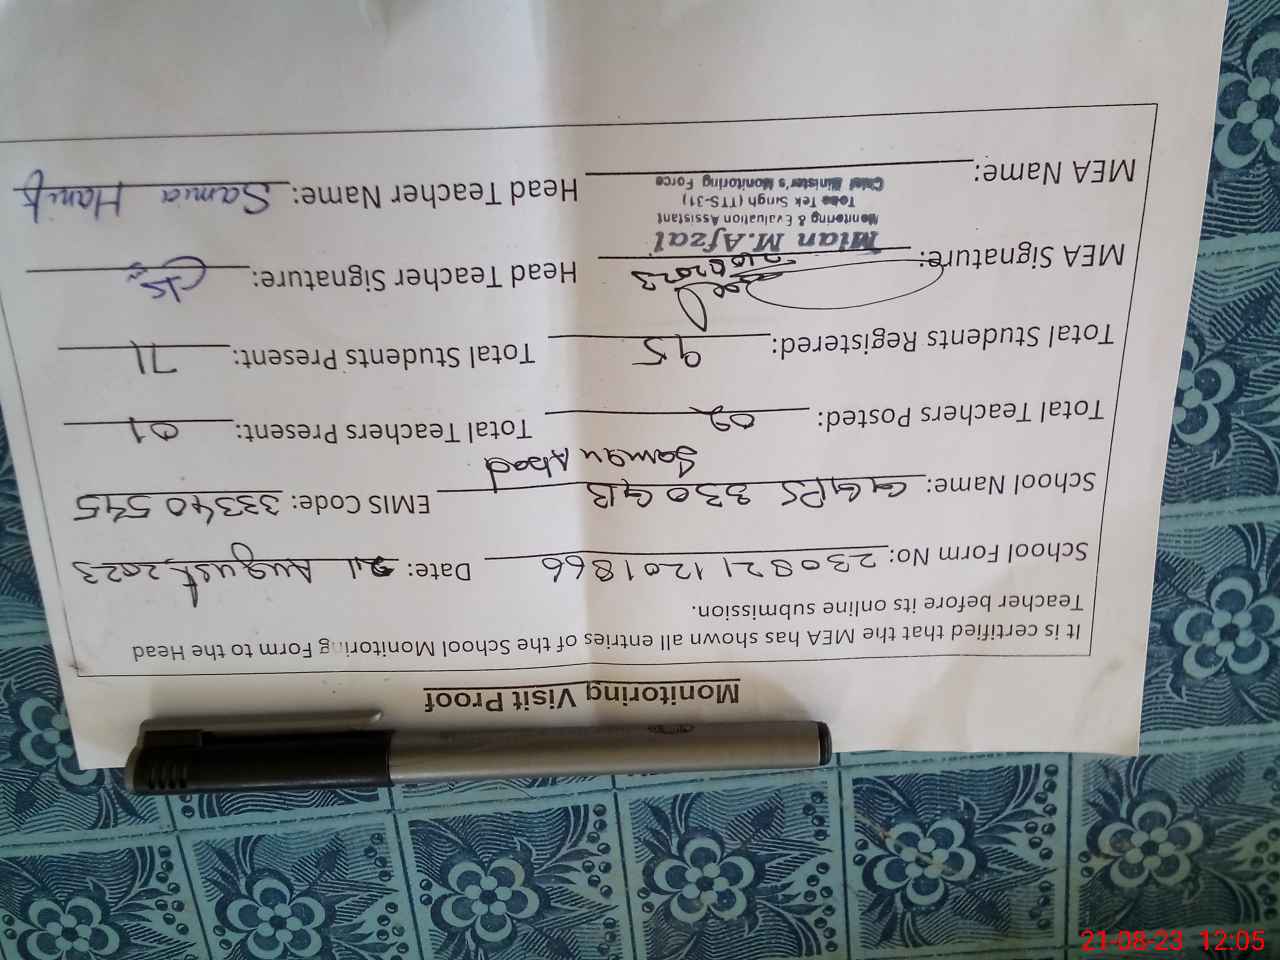 Monitoring Visit Proof
It is certified that the MEA has shown all entries of the School Monitoring Form to the Head
Teacher before its online submission.
School Form No: 230821 1201866 Date: 21 August, 2023
School Name: GGPS 330 GB EMIS Code: 33340545
Saman Abad
Total Teachers Posted: 02 Total Teachers Present: 01
Total Students Registered: 95 Total Students Present: 71
MEA Signature: Head Teacher Signature:
Mian M.Afzal
Monitoring & Evaluation Assistant
Toba Tek Singh (TTS-31)
Chief Minister's Monitoring Force
MEA Name: Head Teacher Name: Samia Hanif
21-08-23 12:05